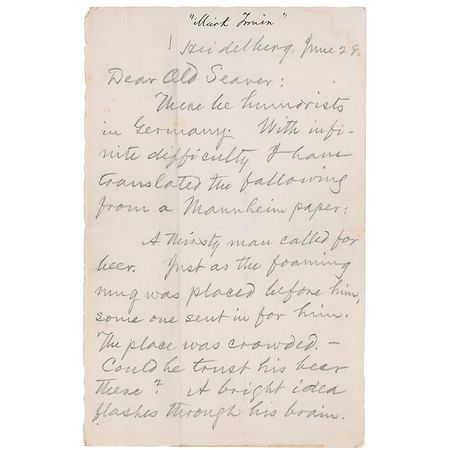 "Mark Twain"
Heidelberg, June 28.
Dear Old Seaver:
There be humorists
in Germany. With infi-
nite difficulty I have
translated the following
from a Mannheim paper:
A thirsty man called for
beer. Just as the foaming
mug was placed before him,
some one sent in for him.
The place was crowded. –
Could he trust his beer
there? A bright idea
flashes through his brain.